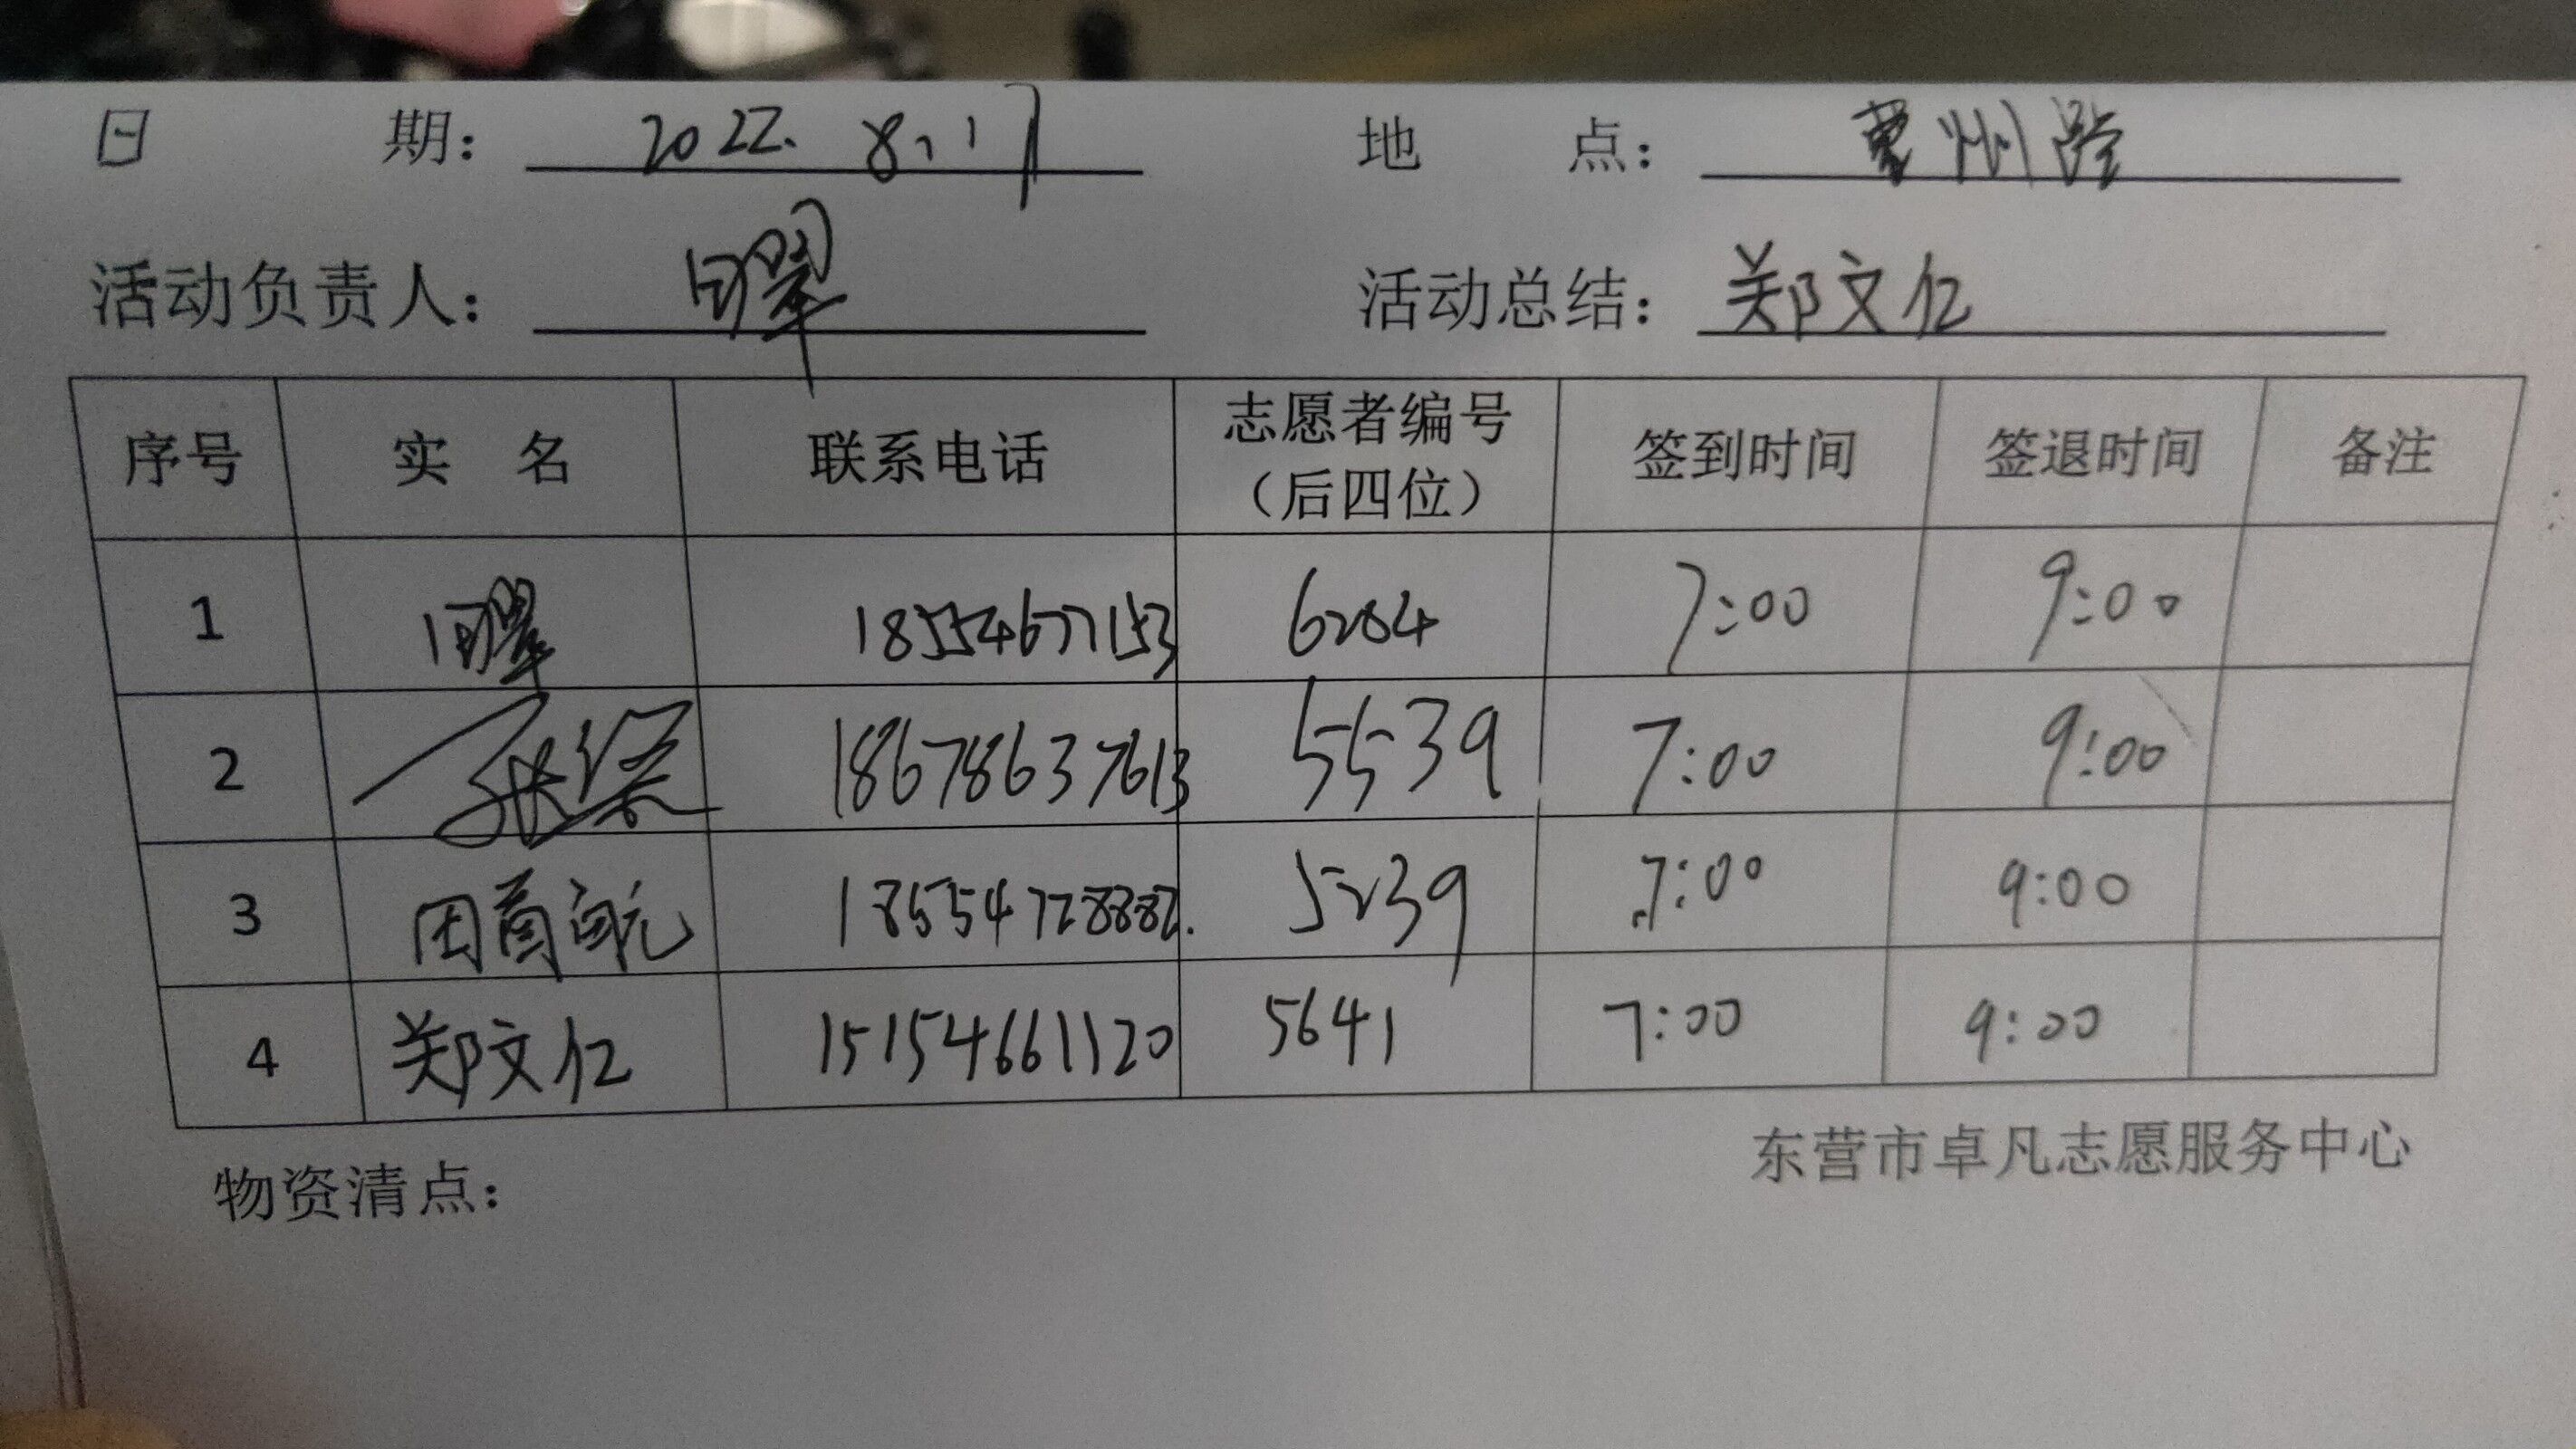 日 期: 2022.8.17 地 点: 州路
活动负责人: 活动总结: 郑文仁
序号 实 名 联系电话 志愿者编号（后四位） 签到时间 签退时间 备注
1 18554677153 6284 7:00 9:00
2 张 18678637613 5539 7:00 9:00
3 18554728882. 5239 7:00 9:00
4 郑文仁 15154661120 5641 7:00 9:00
东营市卓凡志愿服务中心
物资清点: